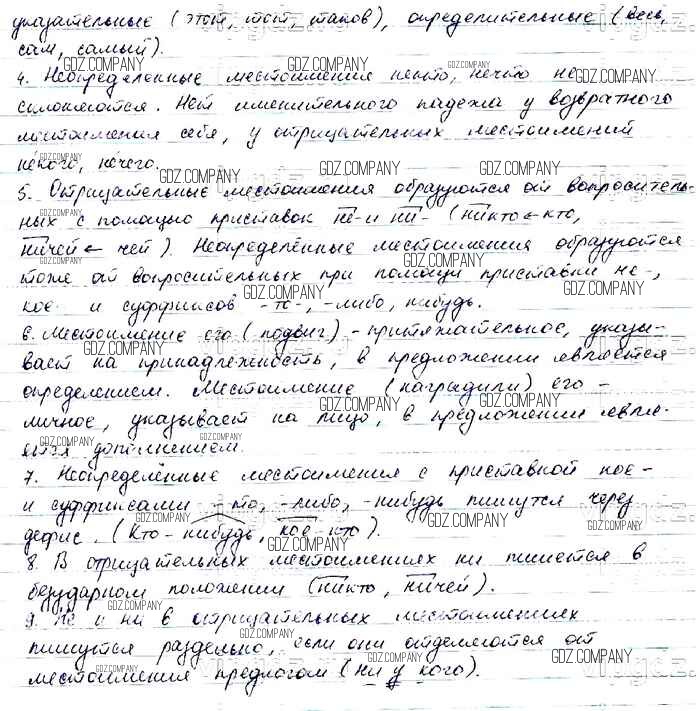 указательные (этот, тот, таков), определительные (весь,
сам, самый).
4. Неопределенные местоимения некто, нечто не
склоняются. Нет именительного падежа у возвратного
местоимения себя, у отрицательных местоимений
некого, нечего.
5. Отрицательные местоимения образуются от вопроситель-
ных с помощью приставок не- и ни- (никто ← кто,
ничей ← чей). Неопределённые местоимения образуются
тоже от вопросительных при помощи приставки не-,
кое- и суффиксов -то-, -либо, нибудь.
6. Местоимение его (подвиг) - притяжательное, указы-
вает на принадлежность, в предложении является
определением. Местоимение (наградили) его -
личное, указывает на лицо, в предложении явля-
ется дополнением.
7. Неопределённые местоимения с приставкой кое-
и суффиксами -то, -либо, -нибудь пишутся через
дефис. (Кто-нибудь, кое-кто).
8. В отрицательных местоимениях ни пишется в
безударном положении (никто, ничей).
9. Не и ни в отрицательных местоимениях
пишутся раздельно, если они отделяются от
местоимения предлогом (ни у кого).
GDZ.COMPANY